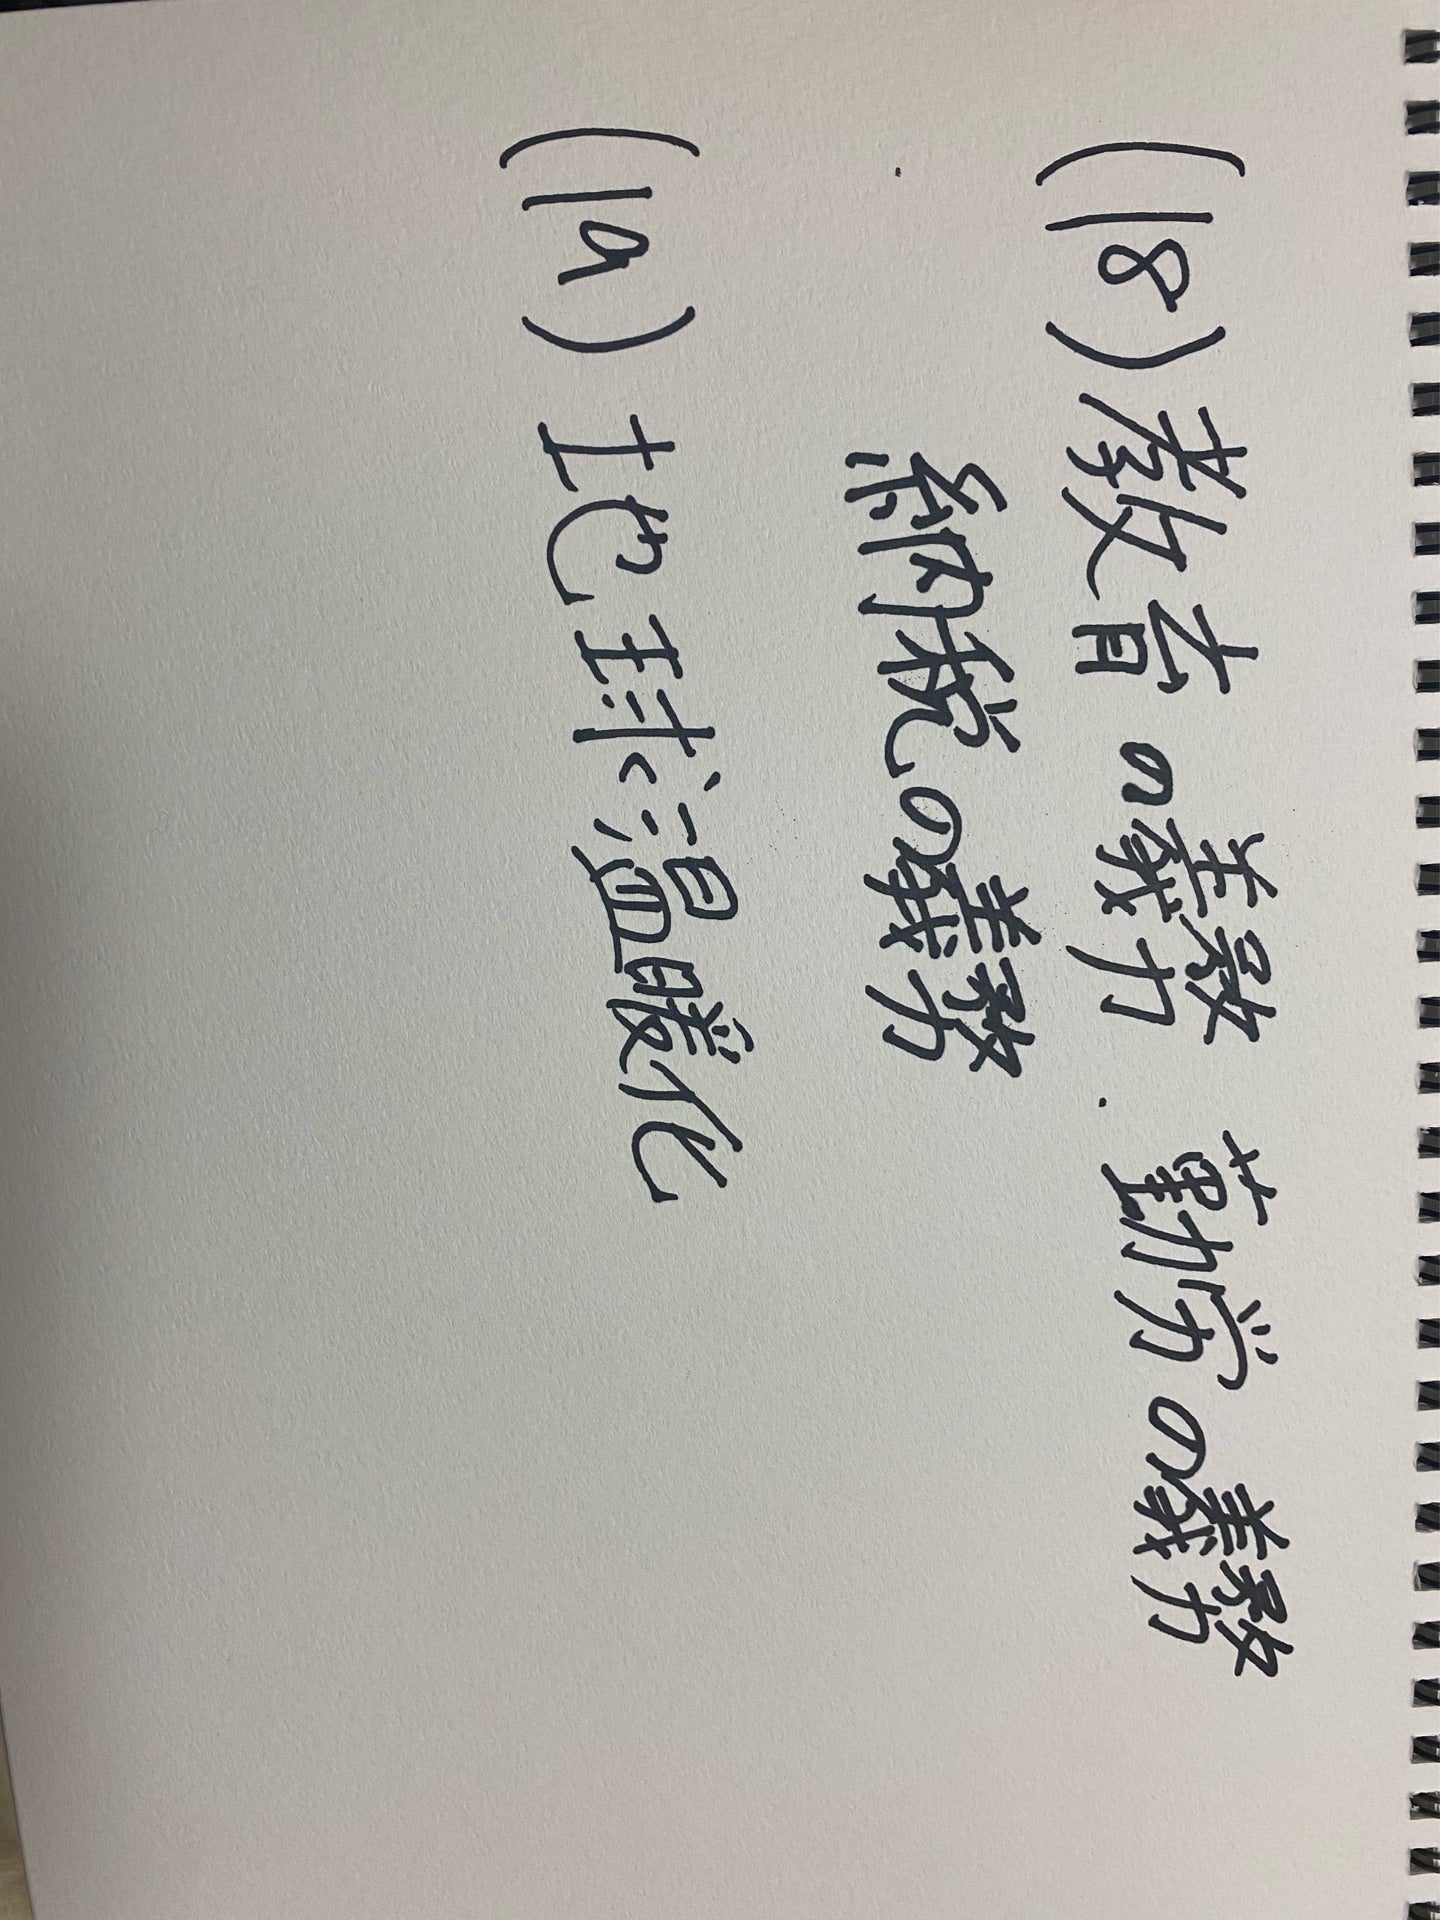 (18)教育の義務.勤労の義務
納税の義務
(19)地球温暖化